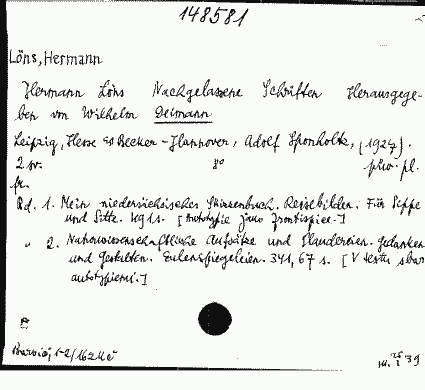 148581
Löns, Hermann
Hermann Löns Nachgelassene Schriften Herausgege-
ben von Wilhelm Deimann
Leipzig, Hesse & Becker - Hannover, Adolf Sponholtz, (1927).
2 sv. 8° pův. pl.
fr.
Bd. 1. Mein niedersächsisches Skizzenbuch. Reisebilden. Für Sippe
und Sitte. s. [Autotypie jako frontispice.]
" 2. Naturwissenschaftliche Aufsätze und Plaudereien. Gedanken
und Gestalten. Eulenspiegeleien. 341, 67 s. [V textu s
autotypiemi.]
39